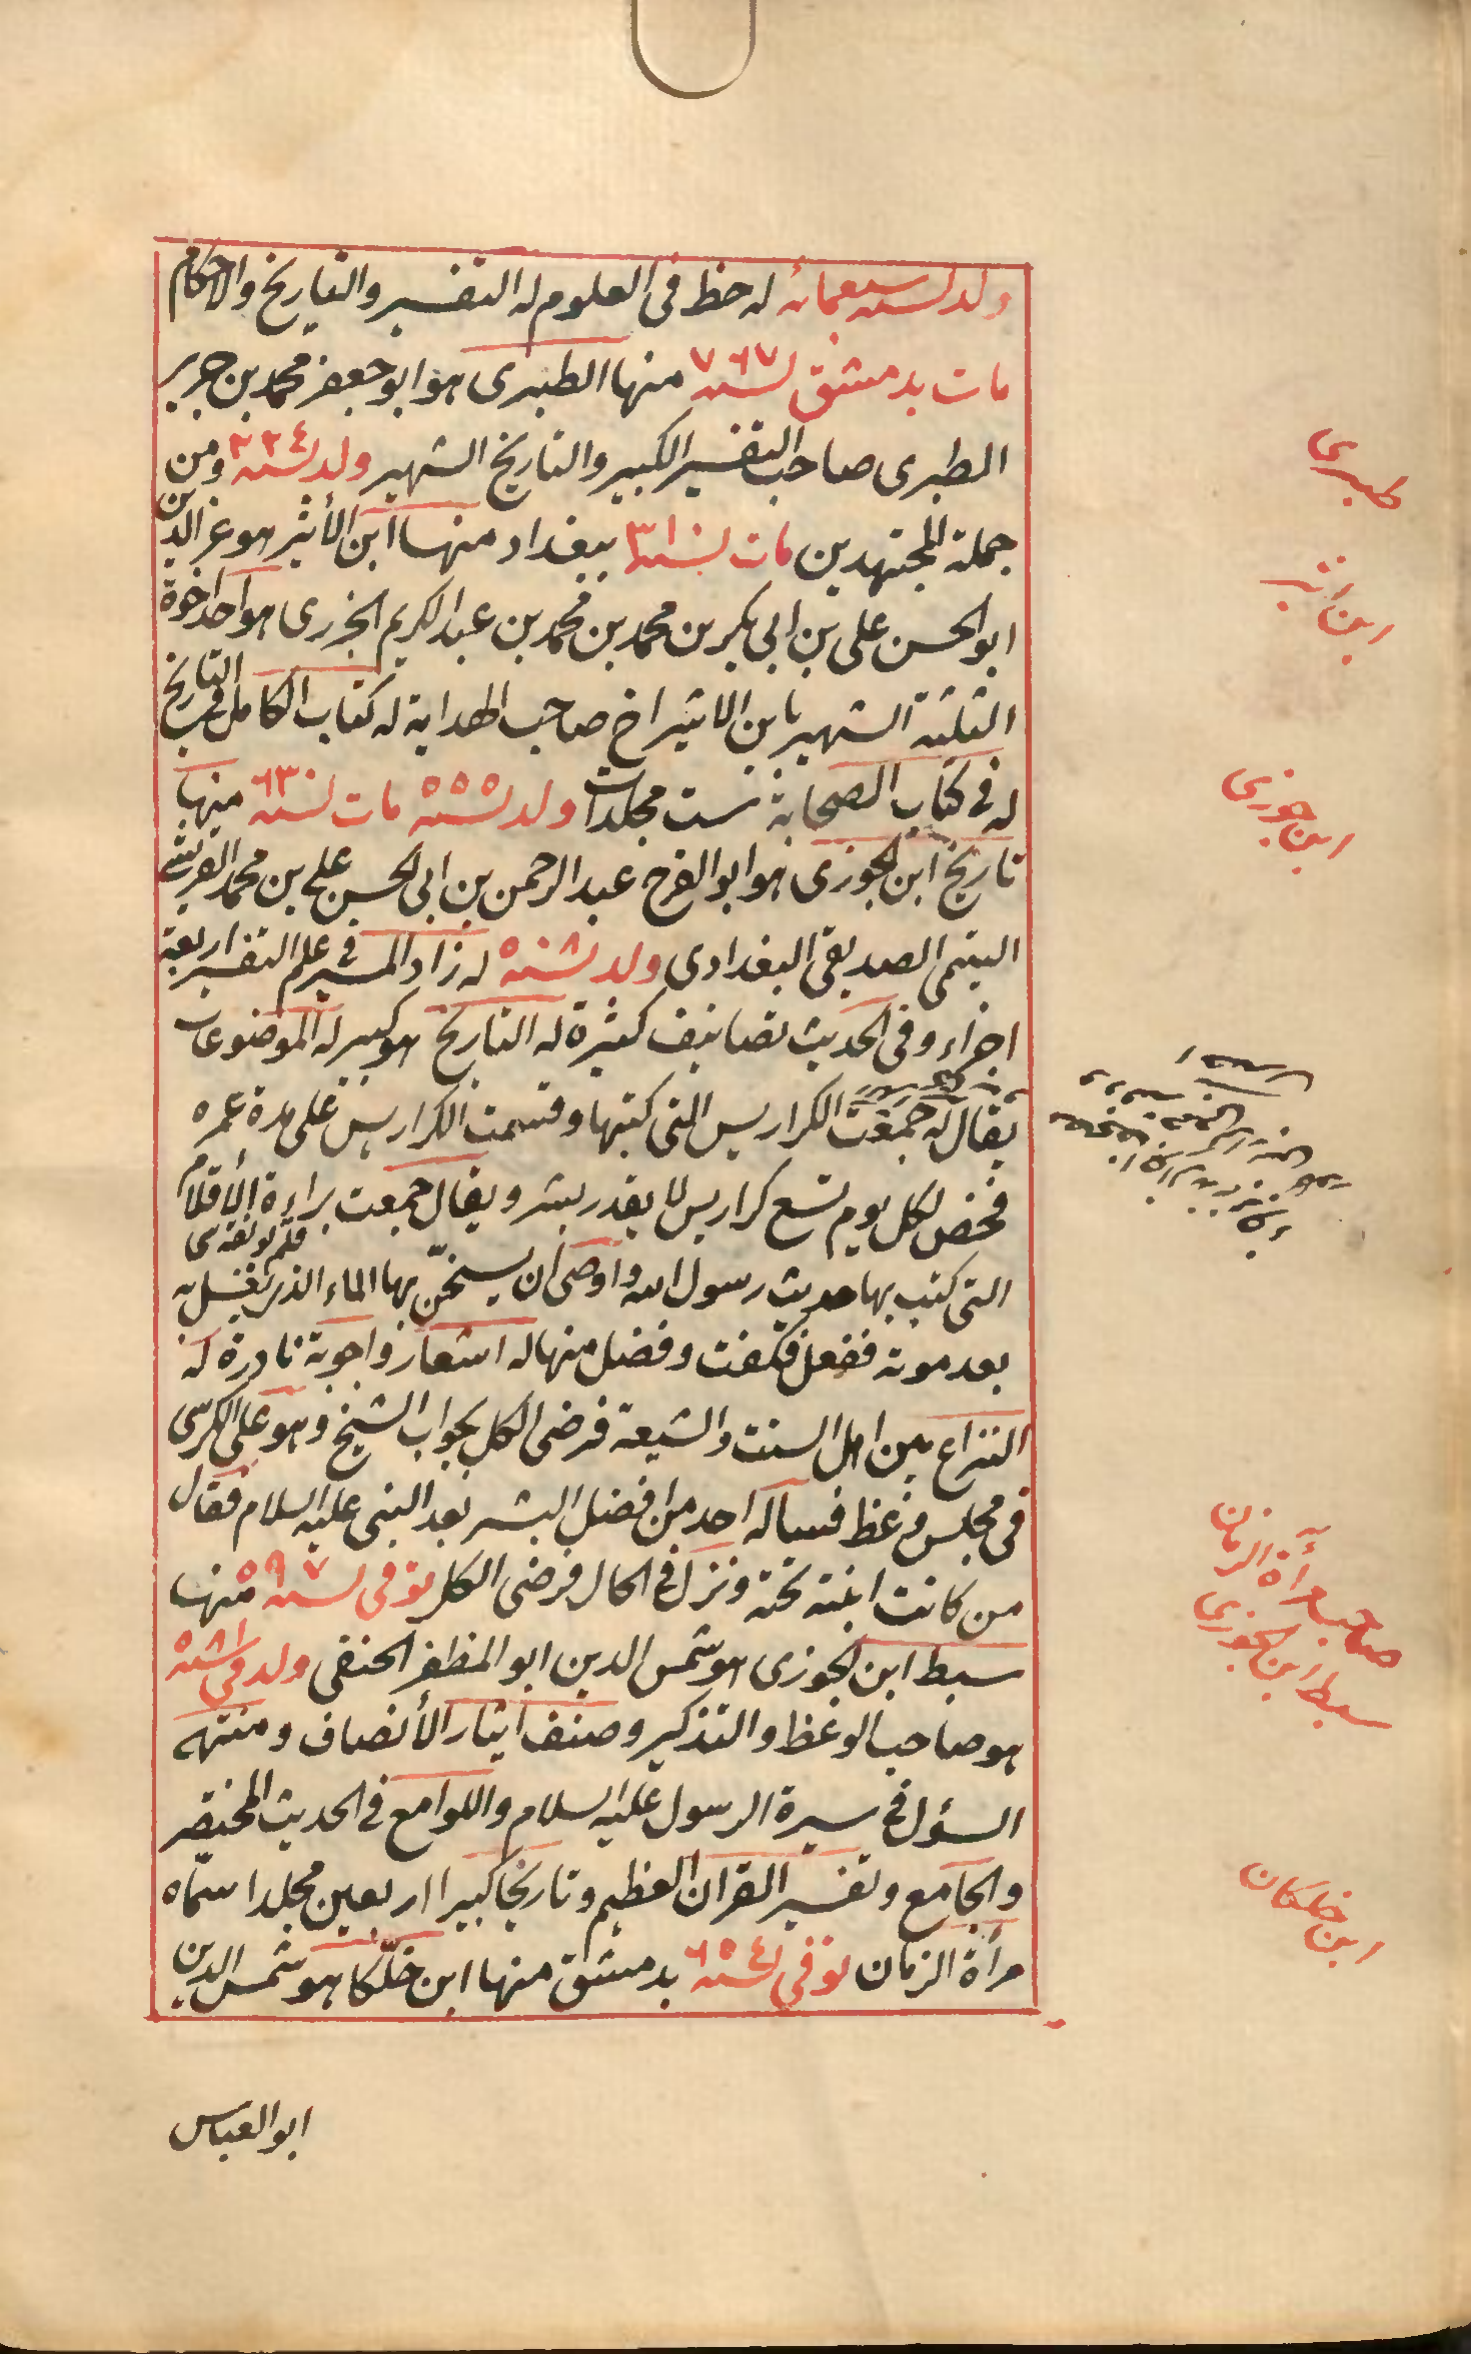 ولد لسنه سبعمائه له حظ فى العلوم له التفسير والتاريخ والاحكام
مات بدمشق لسنه ٧٦٧ منها الطبرى هو ابو جعفر محمد بن جرير
الطبرى صاحب التفسير الكبير والتاريخ الشهير ولد لسنه ٢٢٤ ومن
جملة المجتهدين مات لسنه ٣١٠ ببغداد منها ابن الأثير هو عز الدين
ابو الحسن على بن ابى بكر بن محمد بن محمد بن عبد الكريم الجزرى هو احد اخوة
الثلثة الشهير بابن الاثير اخ صاحب الهداية له كتاب الكامل فى التاريخ
له فى كتاب الصحابة ست مجلدات ولد لسنه ٥٥٥ مات لسنه ٦٣٠ منها
تاريخ ابن الجوزى هو ابو الفرج عبد الرحمن بن ابى الحسن على بن محمد القريشى
التيمى الصديقى البغدادى ولد لسنه ٥٠٨ له زاد المسير فى علم التفسير اربعة
اجزاء وفى الحديث تصانيف كثيرة له التاريخ هو كبير له الموضوعات
يقال له جمعت الكراريس التى كتبها وقسمت الكراريس على مدة عمره
فخص لكل يوم تسع كراريس لا يقدر بشر ويقال جمعت براءة الأقلام
التى كتب بها حديث رسول الله واوصى ان يسخّن بها الماء الذى يغسل به
بعد موته ففعل فكفت وفضل منها له اشعار واجوبة نادرة له
النزاع بين اهل السنت والشيعة فرضى الكل بجواب الشيخ وهو على الكرسى
فى مجلس وعظ فسأله احد من افضل البشر بعد النبى عليه السلام فقال
من كانت ابنته تحته ونزل فى الحال فرضى الكل توفى لسنه ٥٩٧ منها
سبط ابن الجوزى هو شمس الدين ابو المظفر الحنفى ولد فى لسنه ٥٨١
هو صاحب الوعظ والتذكير وصنف ايثار الأنصاف ومنتهى
السؤل فى سيرة الرسول عليه السلام واللوامع فى الحديث المختصر
والجامع وتفسير القران العظيم وتاريخا كبيرا اربعين مجلدا سمّاه
مرأة الزمان توفى لسنه ٦٥٤ بدمشق منها ابن خلّكا هو شمس الدين
ابو العباس
طبرى
ابن اثير
ابن جوزى
صاحب مرآة الزمان
سبط ابن الجوزى
ابن خلكان